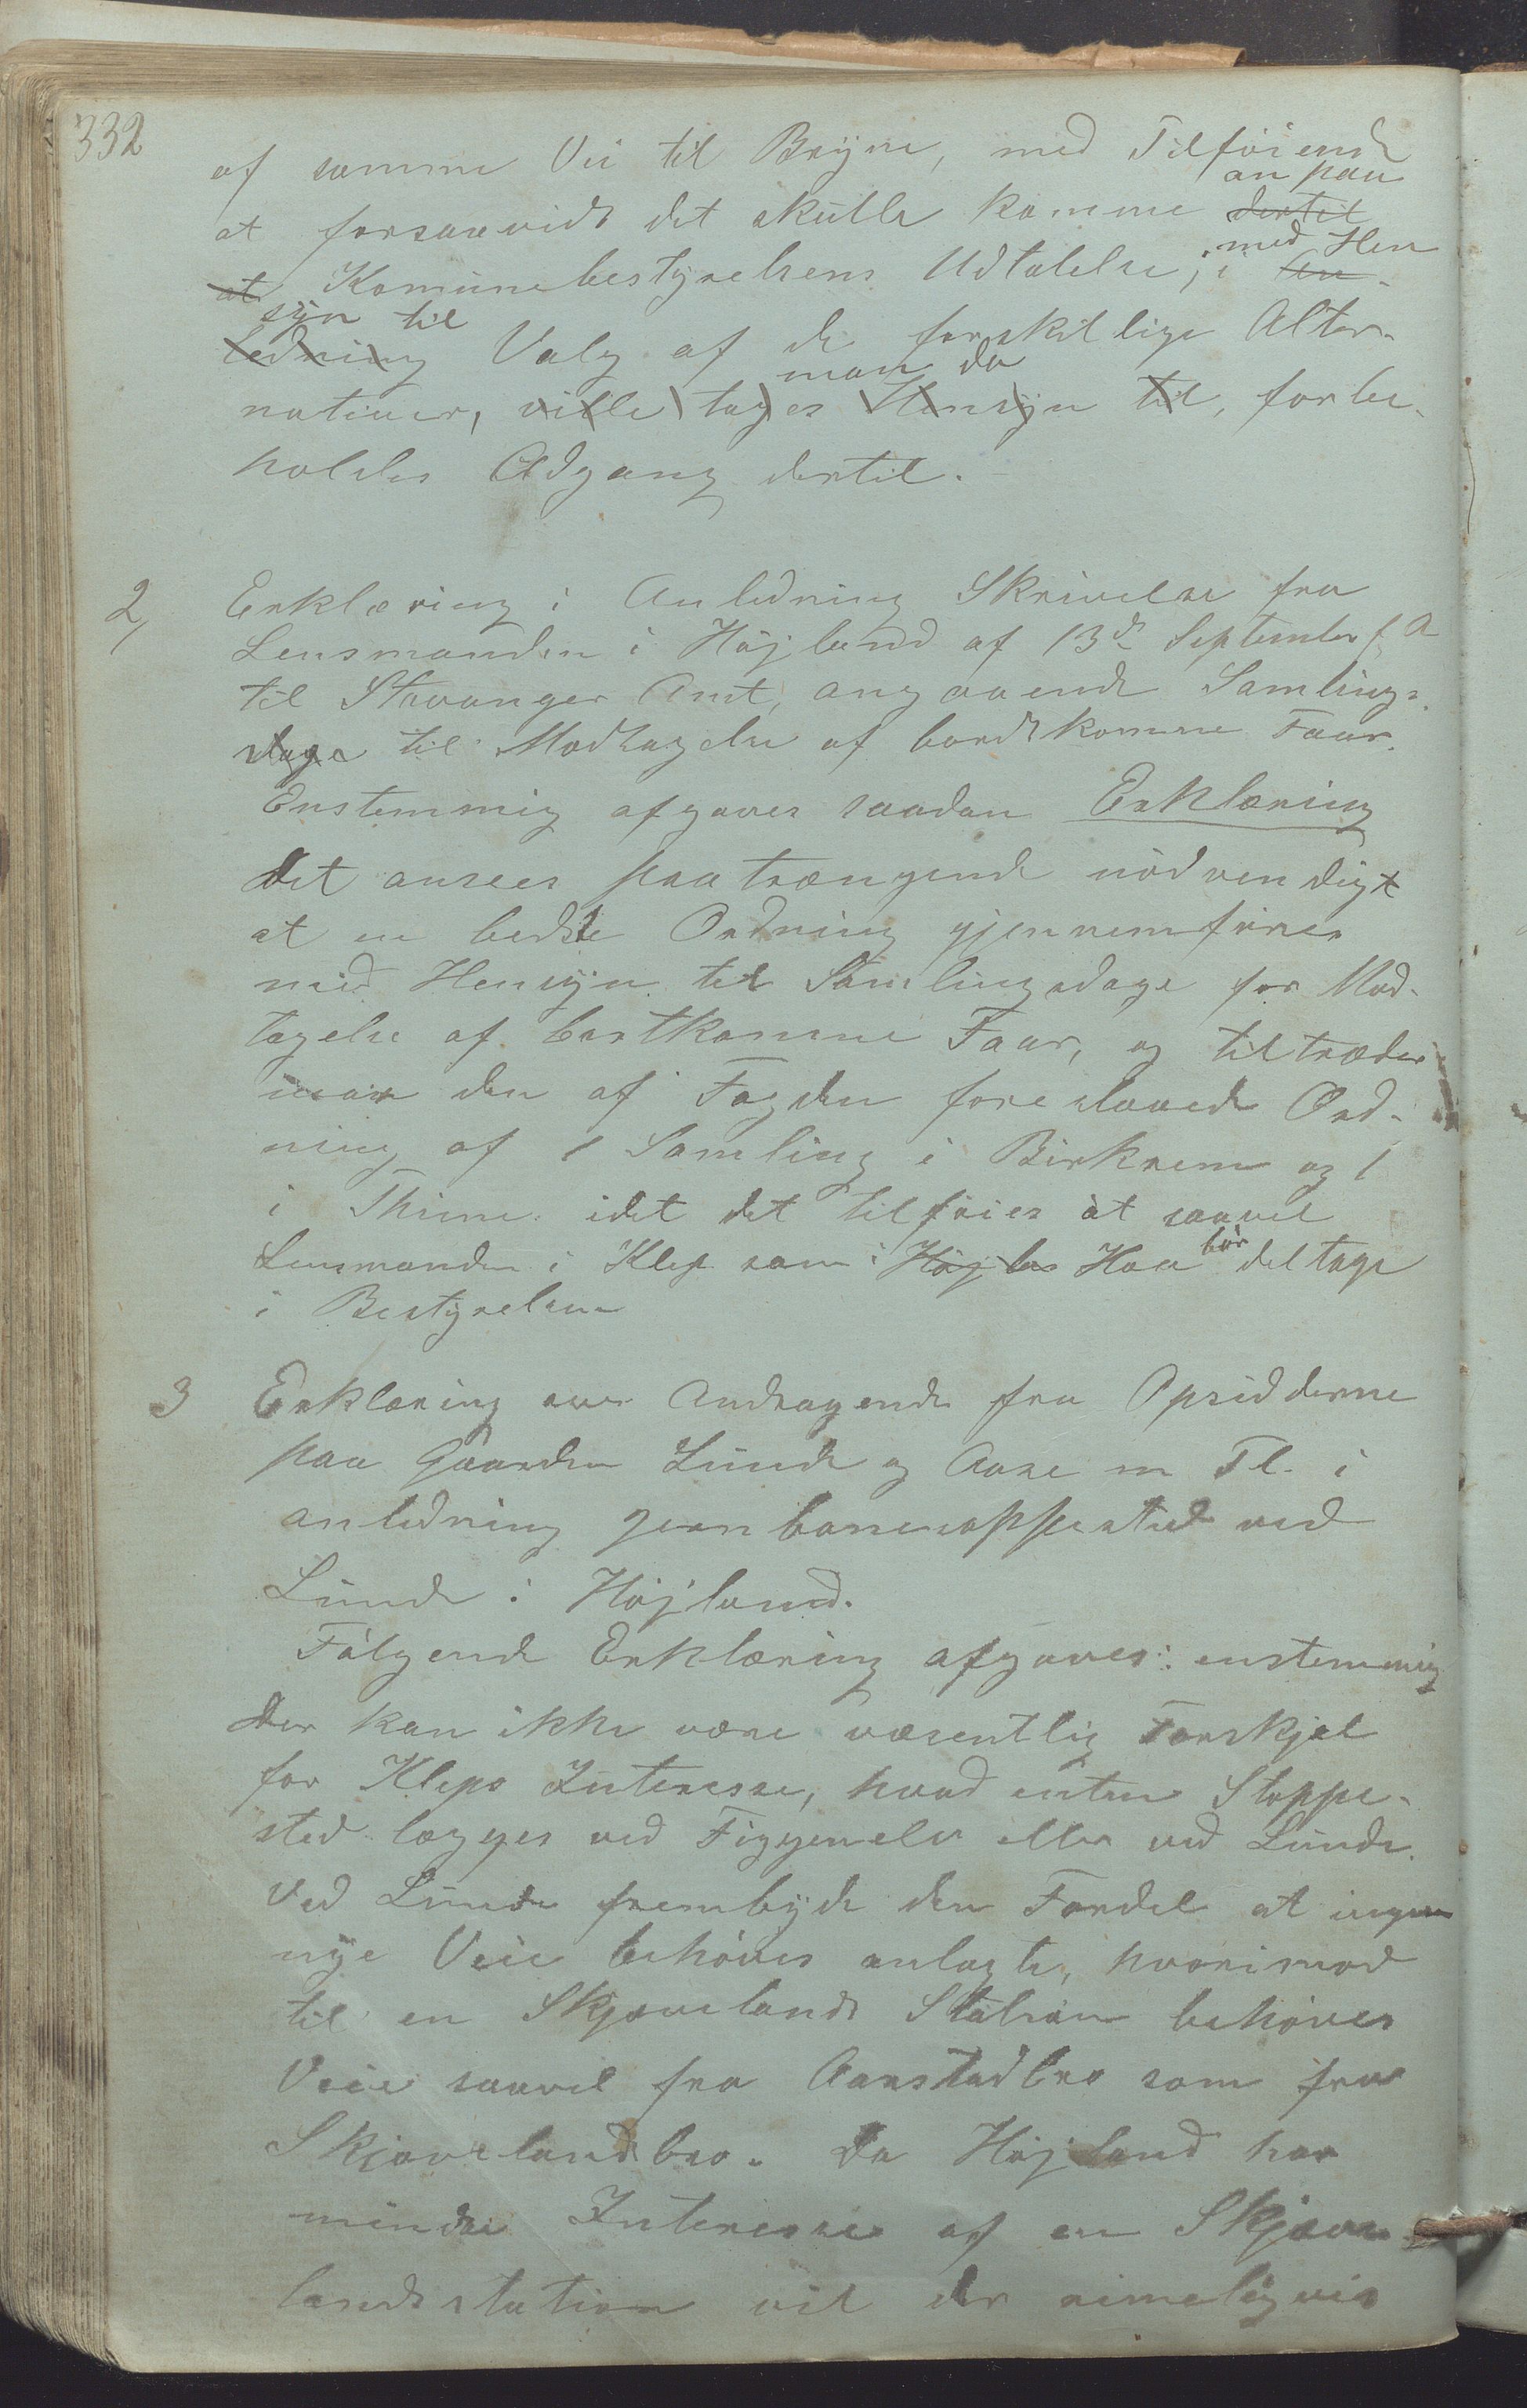 332
af samme Vei til Bryne, med Tilføiende
at forsaavidt det skulle komme dertil an paa
at Komunebestyrelsens Udtalelse, i An- med Hen
ledning syn til Valg af de forskjellige Alter-
nativer, ville tages Hensyn til, man da forbe-
holdes Adgang dertil.
2, Erklæring i Anledning Skrivelse fra
Lensmanden i Højland af 13de September f A
til Stavanger Amt, angaaende Samlings-
dage til Modtagelse af bordtkomne Faar.
Enstemmig afgaves saadan Erklæring
det ansees paatrængende nødvendigt
at en bedste Ordning gjennemføres
med Hensyn til Samlingsdage for Mod-
tagelse af bortkomne Faar, og tiltræder
man den af Fogden foreslaaede Ord-
ning af 1 Samling i Birkrem og 1
i Thime idet det tilføies at saavel
Lensmanden i Klep som i Højla Haa bør deltage
i Bestyrelsen
3 Erklæring over Andragende fra Opsidderne
paa Gaarden Lunde og Aase m Fl. i
anledning Jernbanestoppested ved
Lunde i Højland.
Følgende Erklæring afgaves: enstemmig
Der kan ikke være væsentlig Forskjel
for Kleps Interesse, hvad enten Stoppe-
sted lægges ved Figgenelv eller ved Lunde.
Ved Lunde frembyde den Fordel at ingen
nye Veie behøves anlagte, hvorimod
til en Skjævelands Station behøves
Veie saavel fra Aarstadbro som fra
Skjævelandsbro. Da Højland har
mindre Interesse af en Skjæve-
landsstation vil der rimeligvis